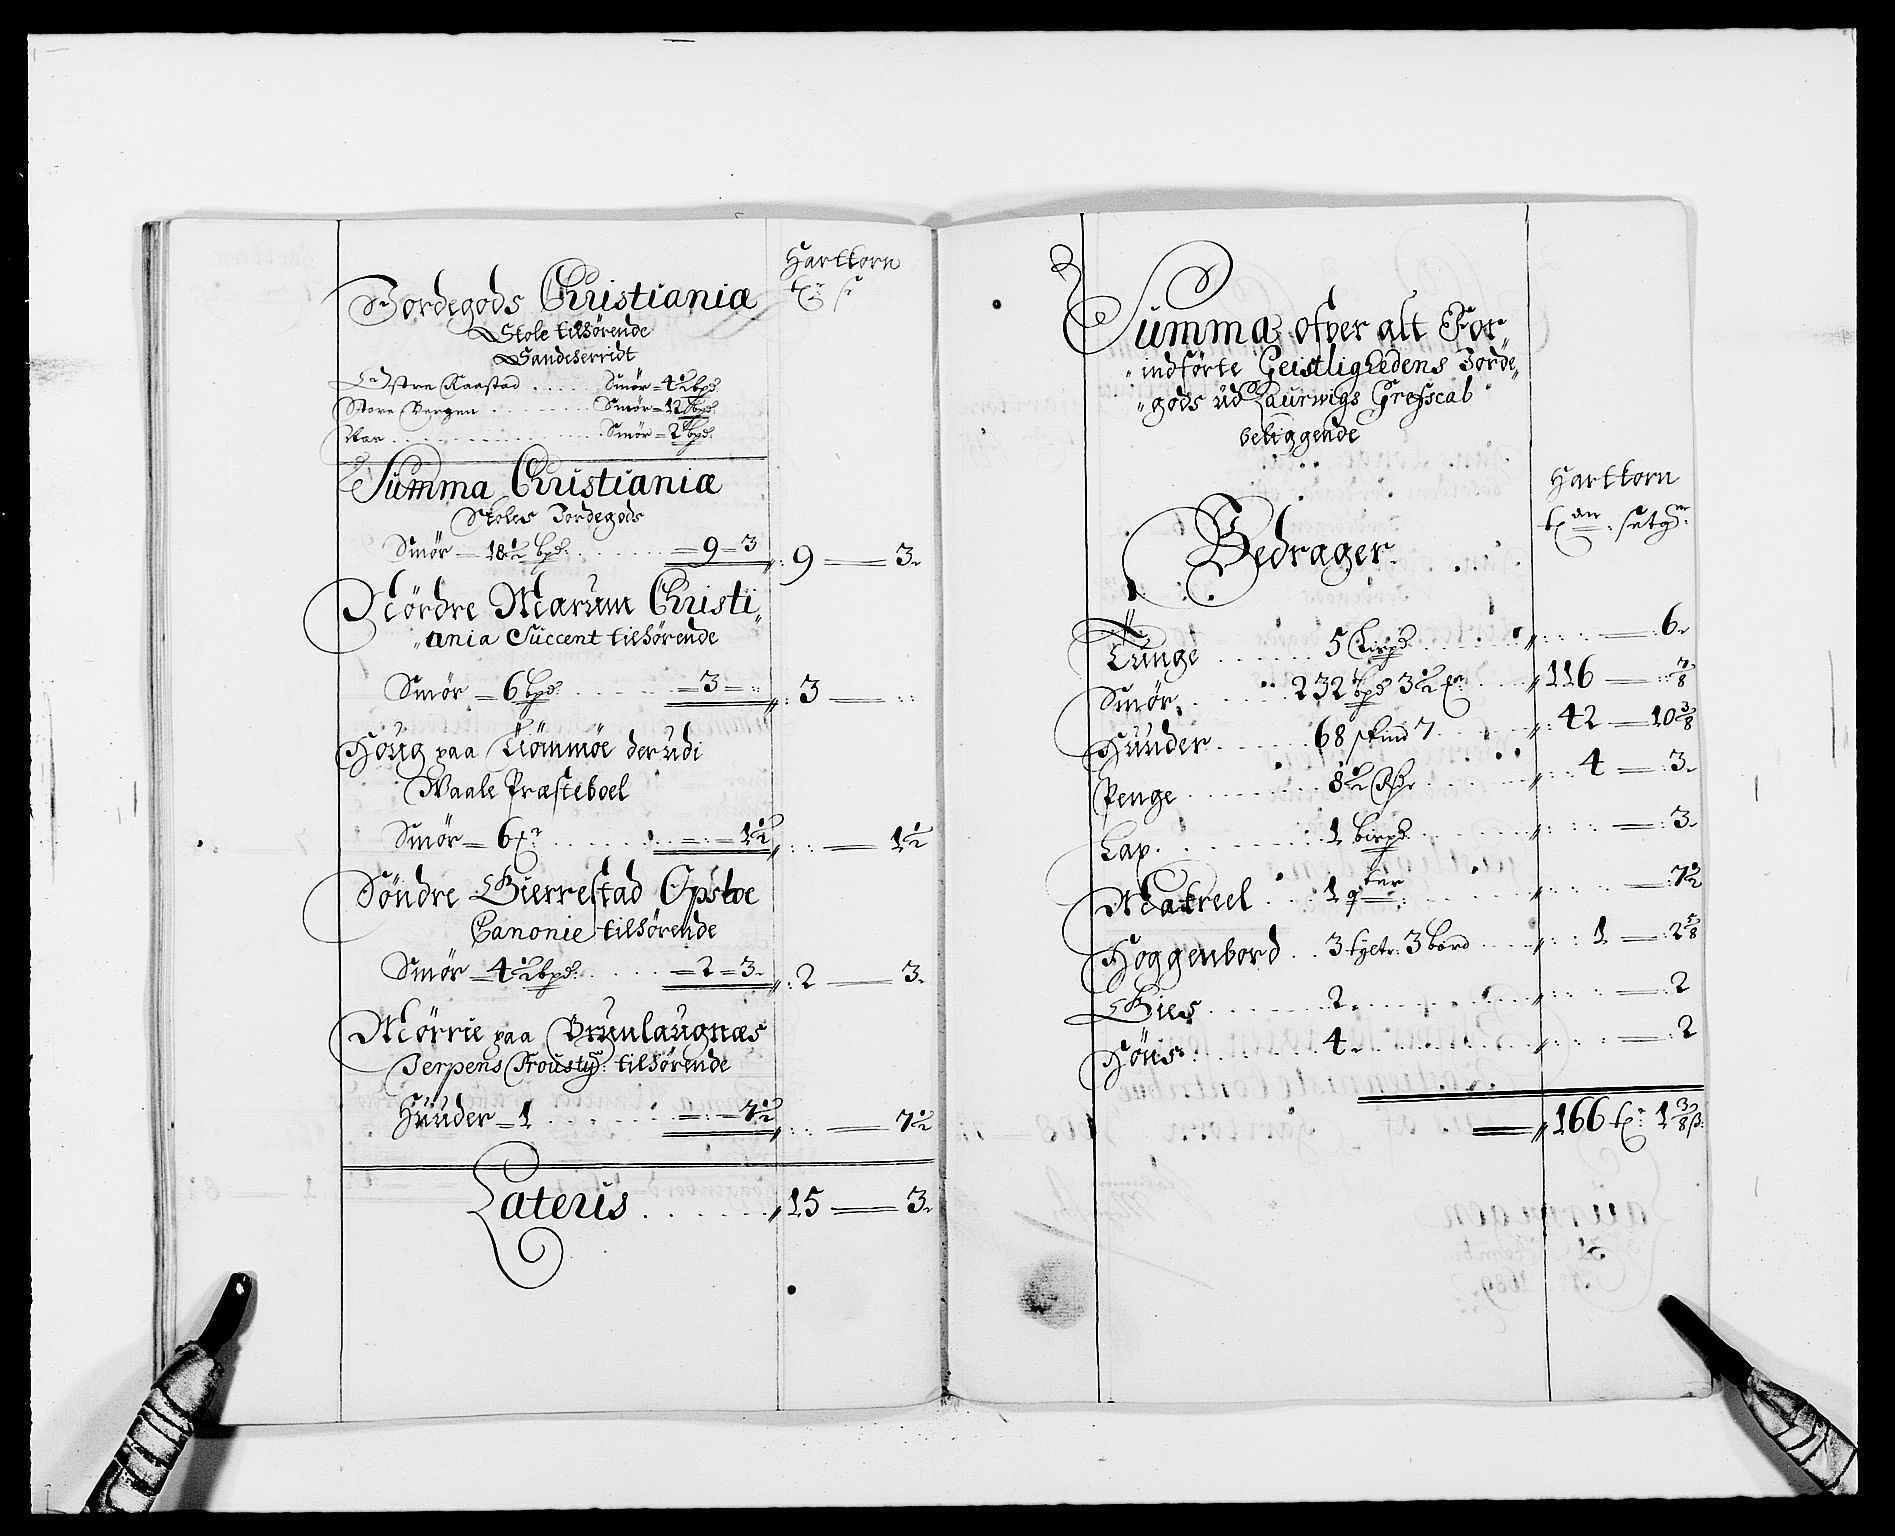 Harttorn
Jordegods Christianiæ
Stole tilhörende
Sandeherridt
Östre Raastad . . . . . Smör = 4½ bpd.
Store Bergen . . . . . . . . Smör = 12 bpd.
Var . . . . . . . . . . . . . . . Smör = 2 bpd.
Summa Christianiæ
Stoles Jordegods
Smör = 18½ bpd. . . . . . = 9 = 3 9 — 3.
Nördre Marum Christi„
„ania Succent tilhörende
Smör = 6 bpd. . . . . . = 3 = :: 3 — ::
Houg paa Tiömmöe der udi
Waale Præsteboel
Smör = 6 . . . . . . = : = 1½ : : — 1½
Söndre Bierrestad Opsloe
Canonie tilhörende
Smör = 4½ bpd. . . . . = 2 = 3. 2 — 3.
Mörrie paa Brunlaugnæs
Jerpens tilhörende
Huuder = 1 . . . . . . = : = 7½ : : — 7½
Lateris . . . . . . 15 — 3.
Summa ofver alt For„
„indförte Geistlighedens Jorde„
„gods ud Laurwigs Grefscab
beliggende
Harttorn
Bedrager.
Tunge . . . . . 5 . . . . . : : : — 6.
Smör. . . . . . 232 bpd 3½ . . . . 116 — : 7/8
Huuder . . . . . . 68 skind 7 . . . . . 42 — 10 3/8
Penge . . . . . . . 8½ . . . . . : 4 — : 3.
Lax. . . . . . . . : 1 birpd. . . . . . : : : — : 3.
Makreel . . . : 1 qter . . . . . : : : — 7½
Hoggenbord . . 3 tyltr. 3 bord . . . . : : 1 — : 2 5/8
Bies . . . . . . . 2. . . . . . . . . . : : : — : 2
Höns . . . . . . . 4. . . . . . . . . . : : : — : 2
166 1 3/8